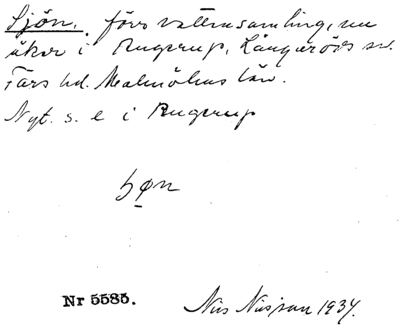 Sjön. förr vattensamling, nu
åker i Rugerup, Långaröds sn.
Färs hd. Malmöhus län.
Nyt. s. e i Rugerup
ʃøn
Nr 5585.
Nils Nilsson 1934.